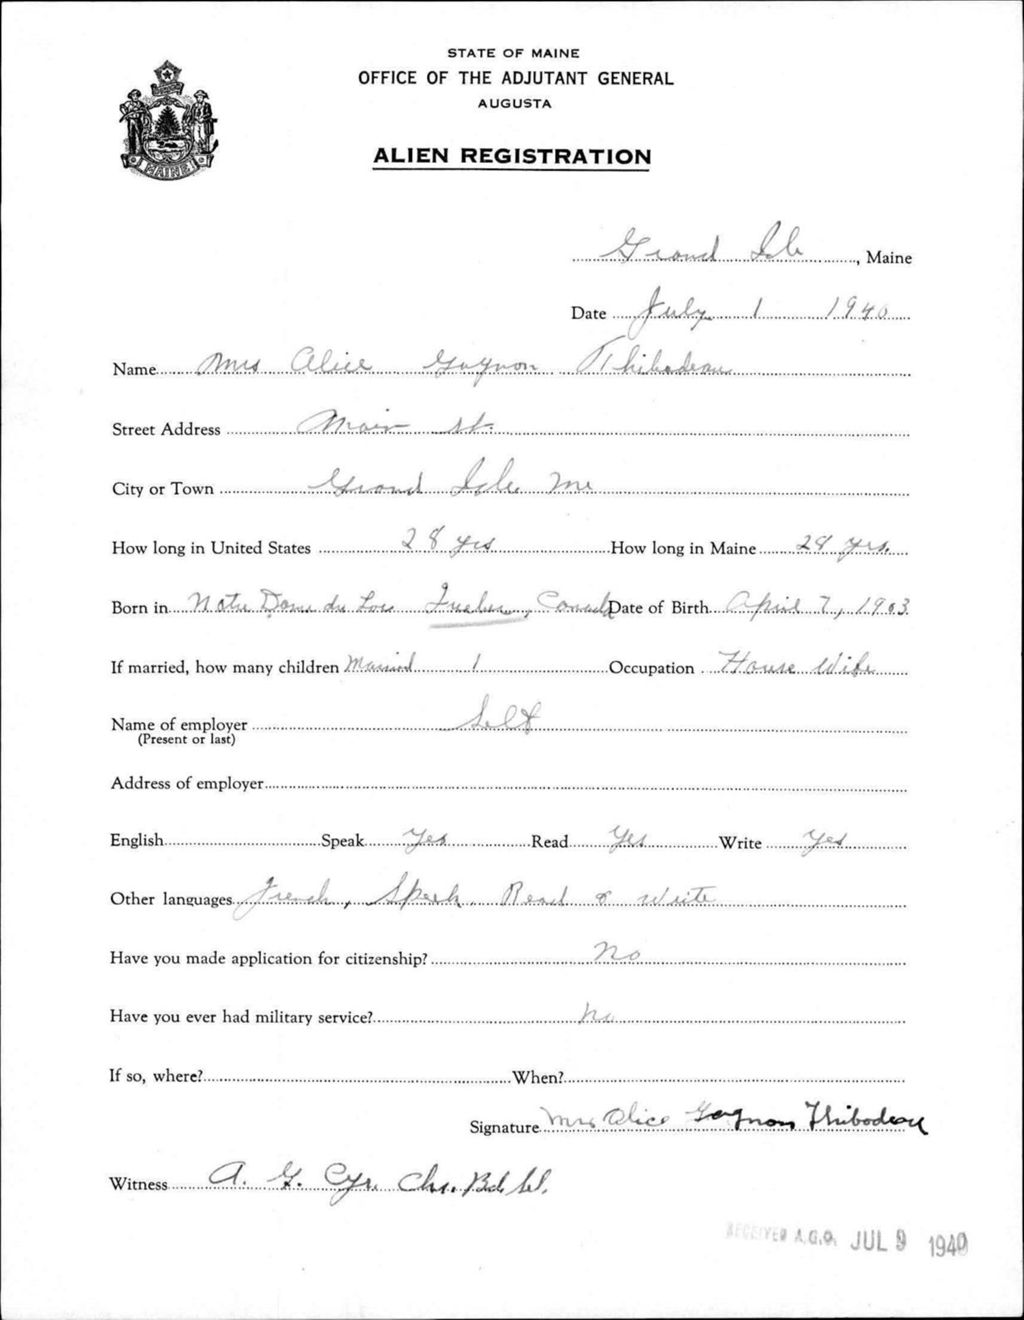 STATE OF MAINE
OFFICE OF THE ADJUTANT GENERAL
AUGUSTA
ALIEN REGISTRATION
MAINE
Grand Isle, Maine
Date July 1 1940
Name Mrs Alice Gagnon Thibodeau
Street Address Main St.
City or Town Grand Isle Me
How long in United States 28 yrs How long in Maine 28 yrs.
Born in Notre Dame du Lac Quebec, Canada Date of Birth April 7, 1903
If married, how many children Married 1 Occupation House Wife
Name of employer Self
(Present or last)
Address of employer
English Speak Yes Read Yes Write Yes
Other languages French, Speak Read & Write
Have you made application for citizenship? No
Have you ever had military service? No
If so, where? When?
Signature Mrs Alice Gagnon Thibodeau
Witness A. G. Cyr. Chr. Bd Sel.
RECEIVED A.G.O. JUL 9 1940